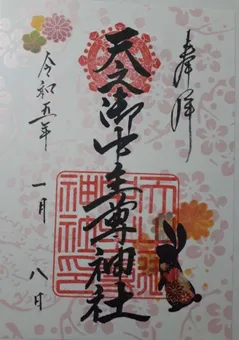 奉拝
天之御中主尊神社
令和五年
一月
八日